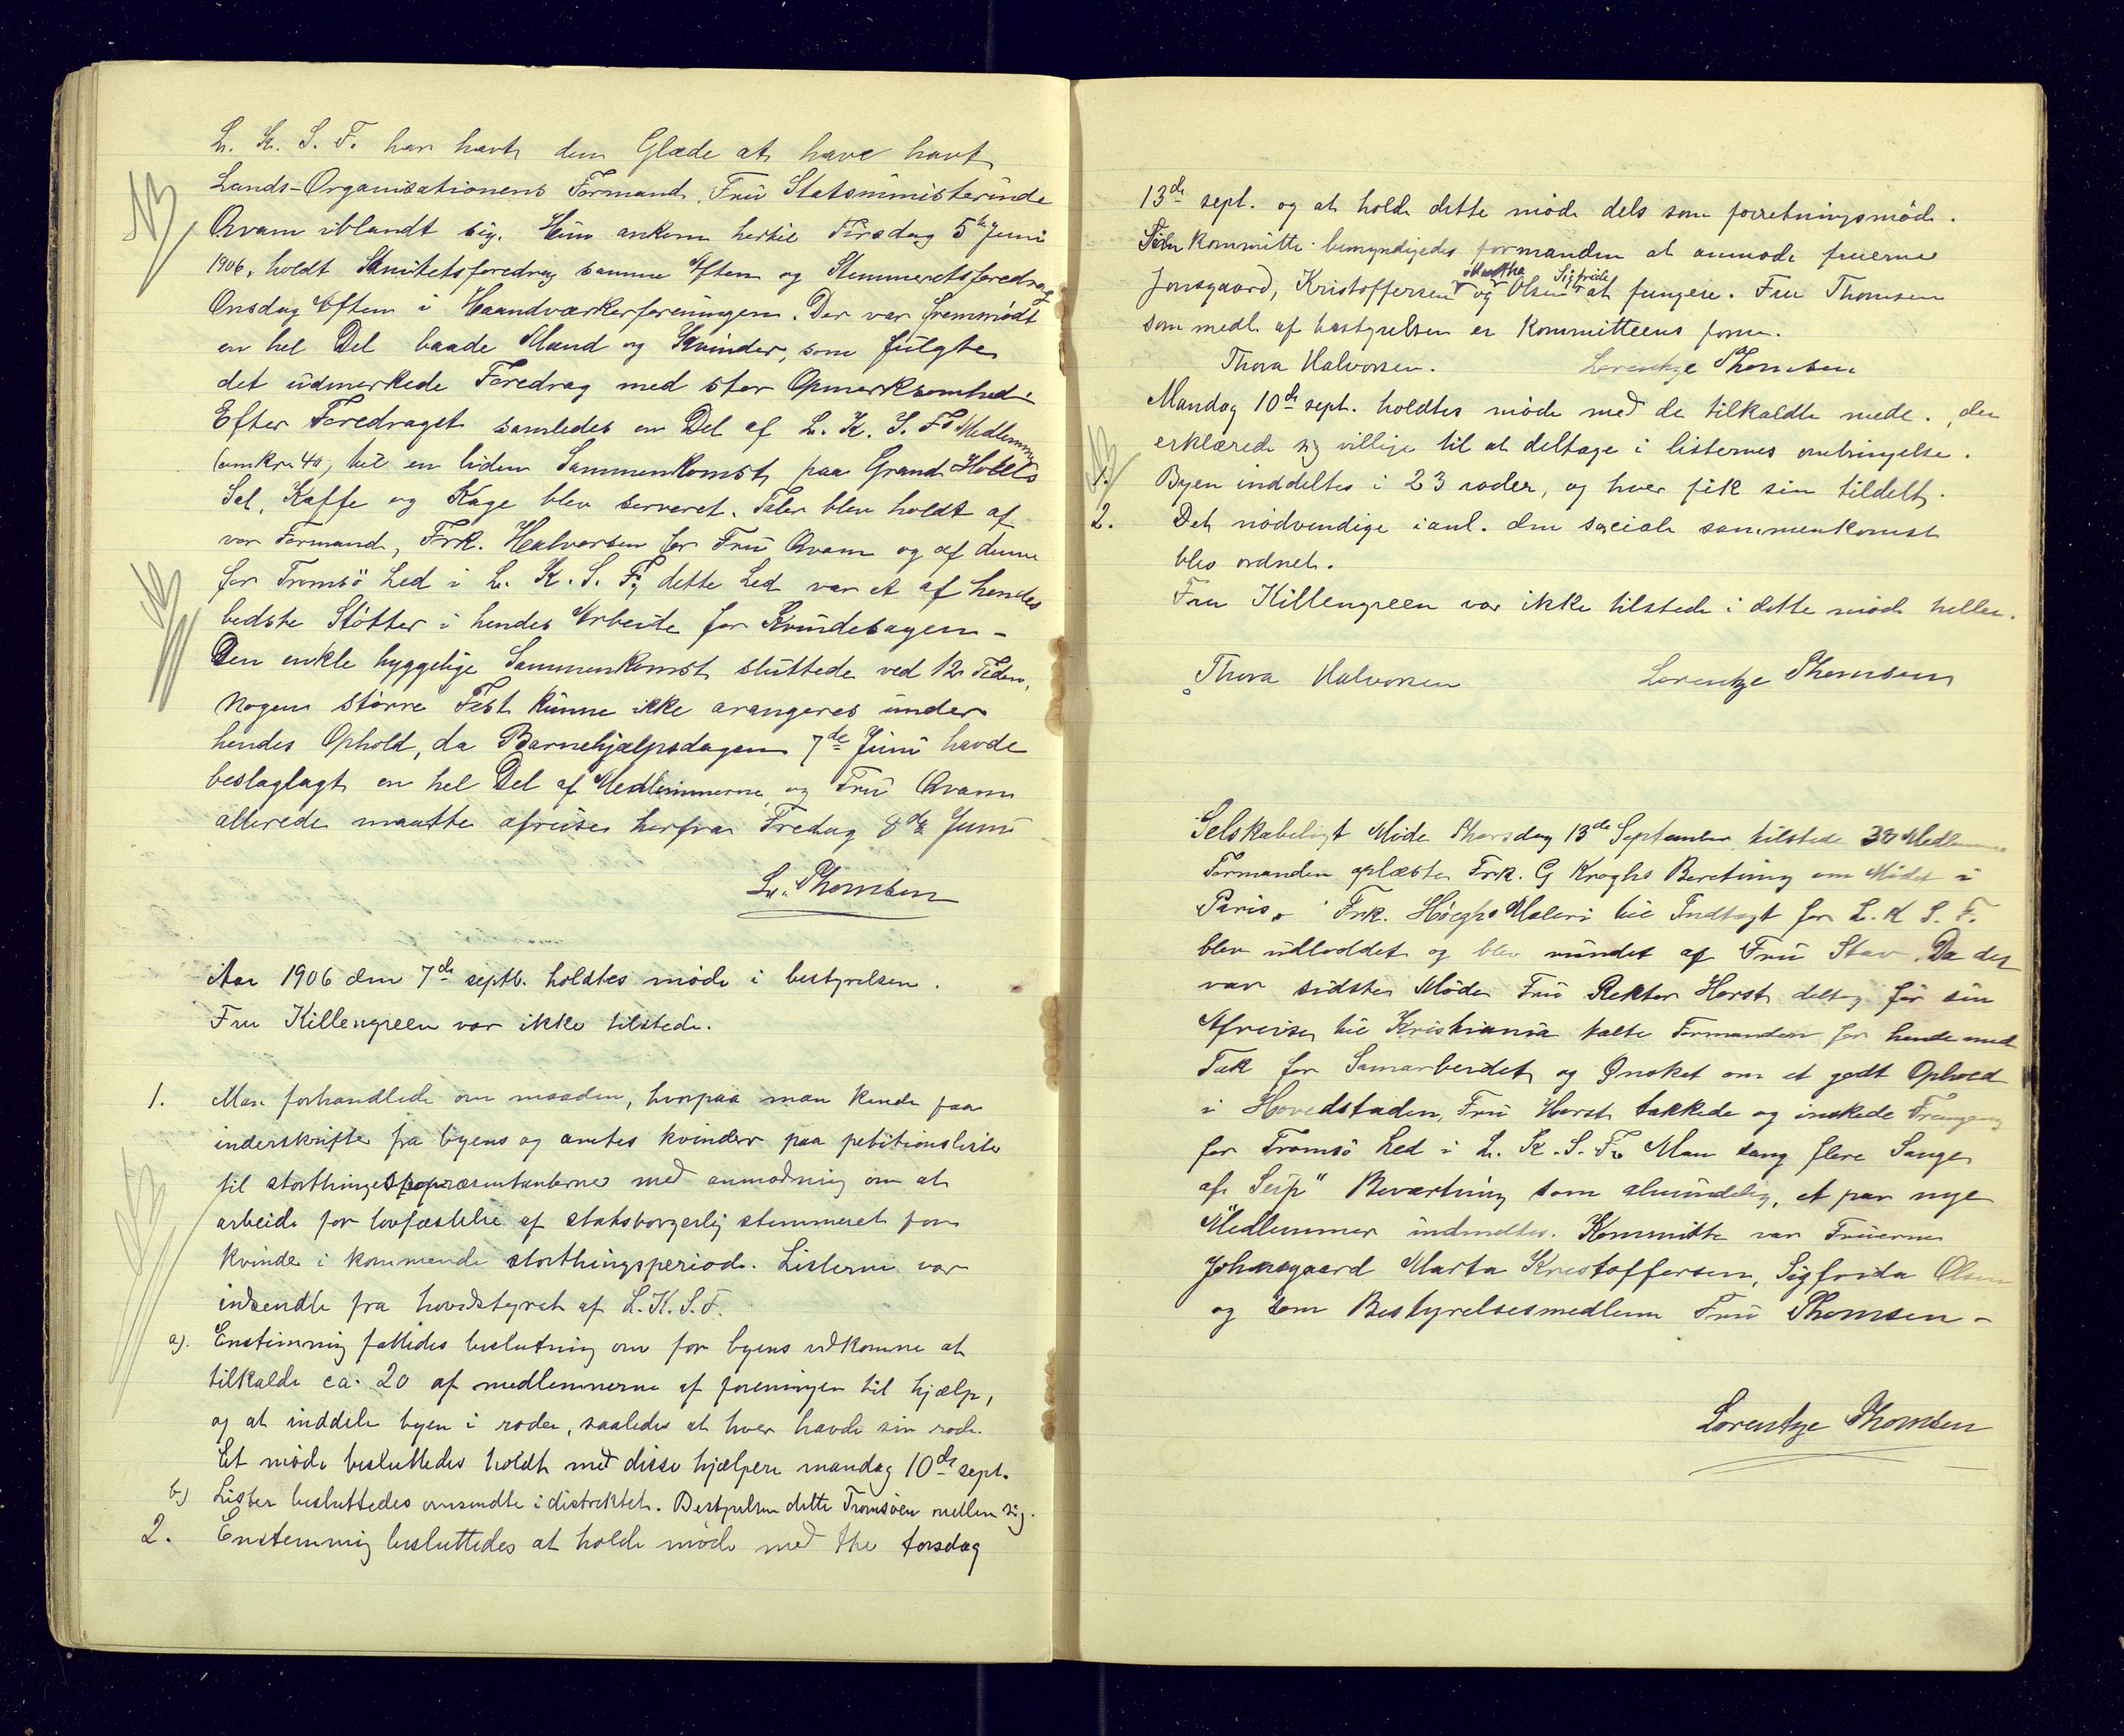 L. K. S. F. har havt den Glæde at have havt
Lands-Organisationens Formand, Fru Statsministerinde
Qvam iblandt sig. Hun ankom hertil Tirsdag 5te Juni
1906, holdt Sanitetsforedrag samme Aften og Stemmeretsforedrag
Onsdag Aften i Haandværkerforeningen. Der var fremmødt
en hel Del baade Mænd og Kvinder, som fulgte
det udmerkede Foredrag med stor Opmerksomhed.
Efter Foredraget samledes en Del af L. K. S. Fs Medlemmer
(omkr. 40) til en liden Sammenkomst paa Grand Hotels
Sal, Kaffe og Kage blev serveret. Taler blev holdt af
vor Formand, Frk. Halvorsen for Fru Qvam og af denne
for Tromsö Led i L. K. S. F., dette Led var et af hendes
bedste Støtter i hendes Arbeide for Kvindesagen -
Den enkle hyggelige Sammenkomst sluttede ved 12 Tiden,
Nogen større Fest kunne ikke arangeres under
hendes Ophold, da Barnehjælpsdagen 7de Juni havde
beslaglagt en hel Del af Medlemmerne og Fru Qvam
allerede maatte afreise herfra Fredag 8de Juni
L. Thomsen
Aar 1906 den 7de septb. holdtes møde i bestyrelsen.
Fru Killengreen var ikke tilstede.
1. Man forhandlede om maaden, hvorpaa man kunde faa
underskrifter fra byens og amtes kvinder paa petitionslister
til storthingsrepræsentanterne med anmodning om at
arbeide for lovfæstelse af statsborgerlig stemmeret for
kvinder i kommende storthingsperiode. Listerne var
indsendte fra hovedstyret af L.K.S.F.
a). Enstemmig fattedes beslutning om for byens vedkomne at
tilkalde ca. 20 af medlemmerne af foreningen til hjælp,
og at inddele byen i roder, saaledes at hver havde sin rode.
Et møde besluttedes holdt med disse hjælpere mandag 10de sept.
b) Lister besluttedes omsendte i distriktet. Bestyrelsen delte Tromsøen mellem sig.
2. Enstemmig besluttedes at holde møde med the torsdag
13de sept. og at holde dette møde dels som forretningsmøde.
Som kommitte bemyndigedes formanden at anmode fruerne
Martha Sigfride
Jonsgaard, Kristoffersen og Olsen at fungere. Fru Thomsen
som medl. af bestyrelsen er kommitteens form.
Thora Halvorsen. Lorentze Thomsen
NB
Mandag 10de sept. holdtes møde med de tilkaldte medl., der
erklærede sig villige til at deltage i listernes ombringelse.
1. Byen inddeltes i 23 roder, og hver fik sin tildelt.
2. Det nødvendige i anl. den sociale sammenkomst
blev ordnet.
Fru Killengreen var ikke tilstede i dette møde heller.
Thora Halvorsen Lorentze Thomsen
Selskabeligt Møde Thorsdag 13de September, tilstede 33 Medlemmer
Formanden oplæste Frk. G Kroghs Beretning om Mødet i
Paris. Frk. Høeghs Maleri til Indtægt for L. K S. F.
blev udloddet og blev vundet af Fru Stav. Da det
var sidste Møde Fru Rektor Horst deltog før sin
Afreise til Kristiania talte Formanden for hende med
Tak for Samarbeidet og Ønsket om et godt Ophold
i Hovedstaden, Fru Horst takkede og ønskede Fremgang
for Tromsö Led i L. K. S. F. Man sang flere Sange
af "Seip" Beværtning som almindelig, et par nye
Medlemmer indmeltes. Kommitte var Fruerne
Johnsgaard Marta Kristoffersen, Sigfrida Olsen
og som Bestyrelsesmedlem Fru Thomsen -
Lorentze Thomsen